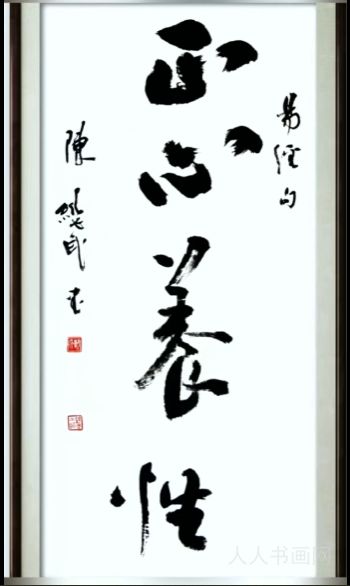 易經句
正心養性
陳
人人书画网